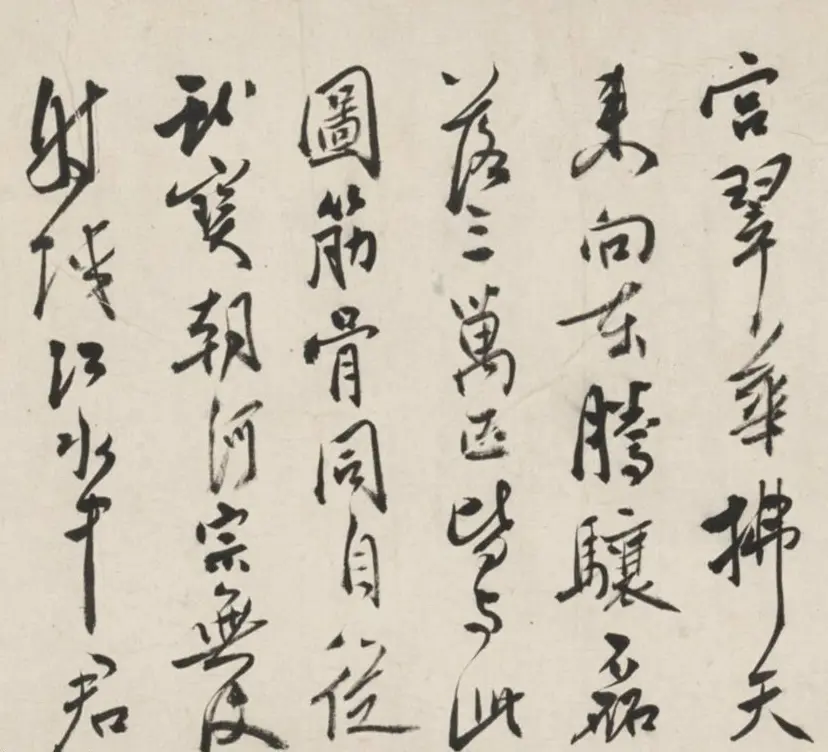 宫翠華拂天
来向東騰驤磊
落三萬匹皆与此
圖筋骨同自從
献寳朝河宗無復
射蛟江水中君